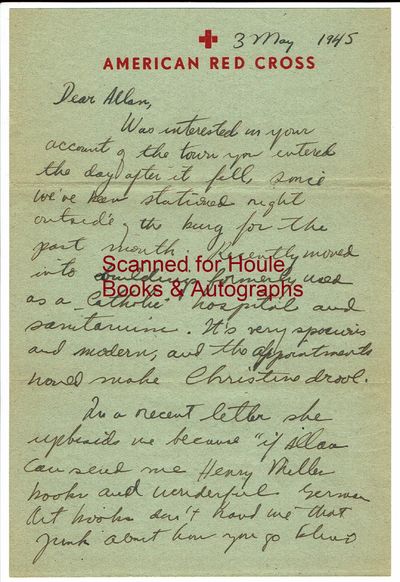 3 May 1945
AMERICAN RED CROSS
Dear Allan,
Was interested in your
account of the town you entered
the day after it fell, since
we've been stationed right
outside the burg for the
past month. Recently moved
into buildings formerly used
Scanned for Houle
as a Catholic hospital and
Books & Autographs
sanitarium. It's very spacious
and modern, and the appointments
would make Christine drool.
In a recent letter she
upbraids me because "if Allan
can send me Henry Miller
books and wonderful German
Art books don't hand me that
junk about how you go